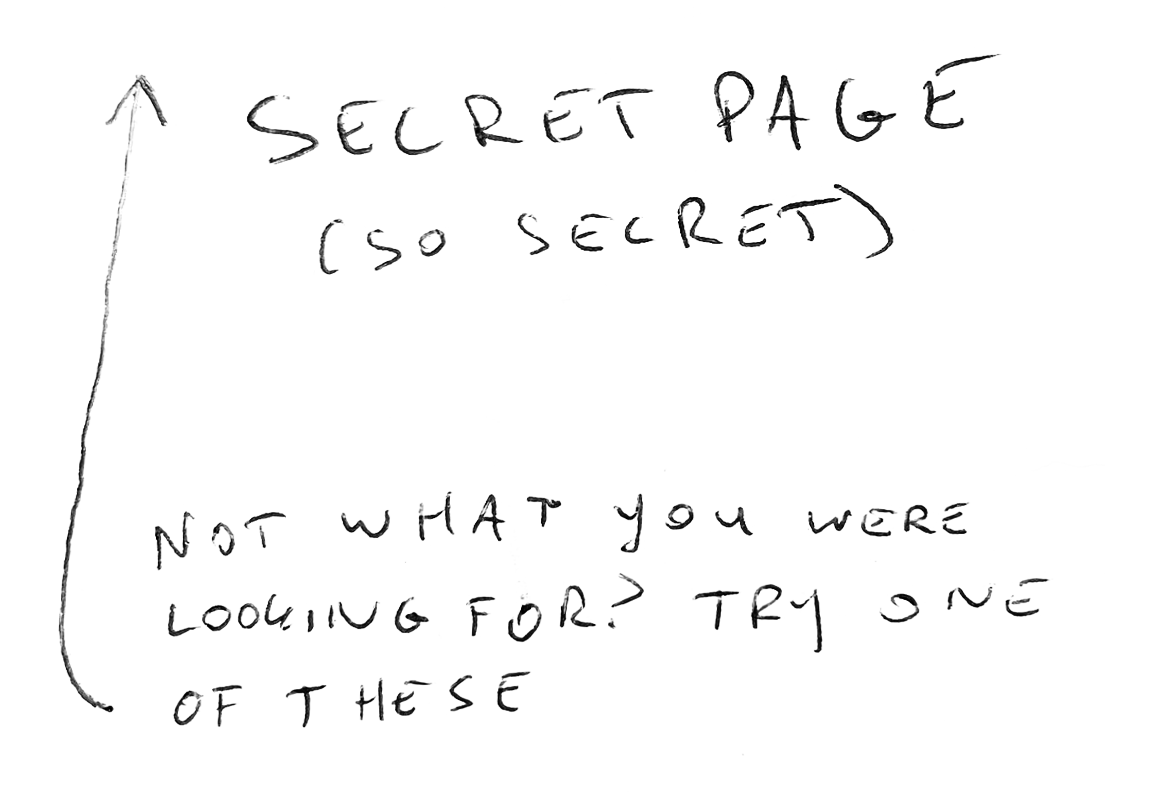 SECRET PAGE
(SO SECRET)
NOT WHAT YOU WERE
LOOKING FOR? TRY ONE
OF THESE